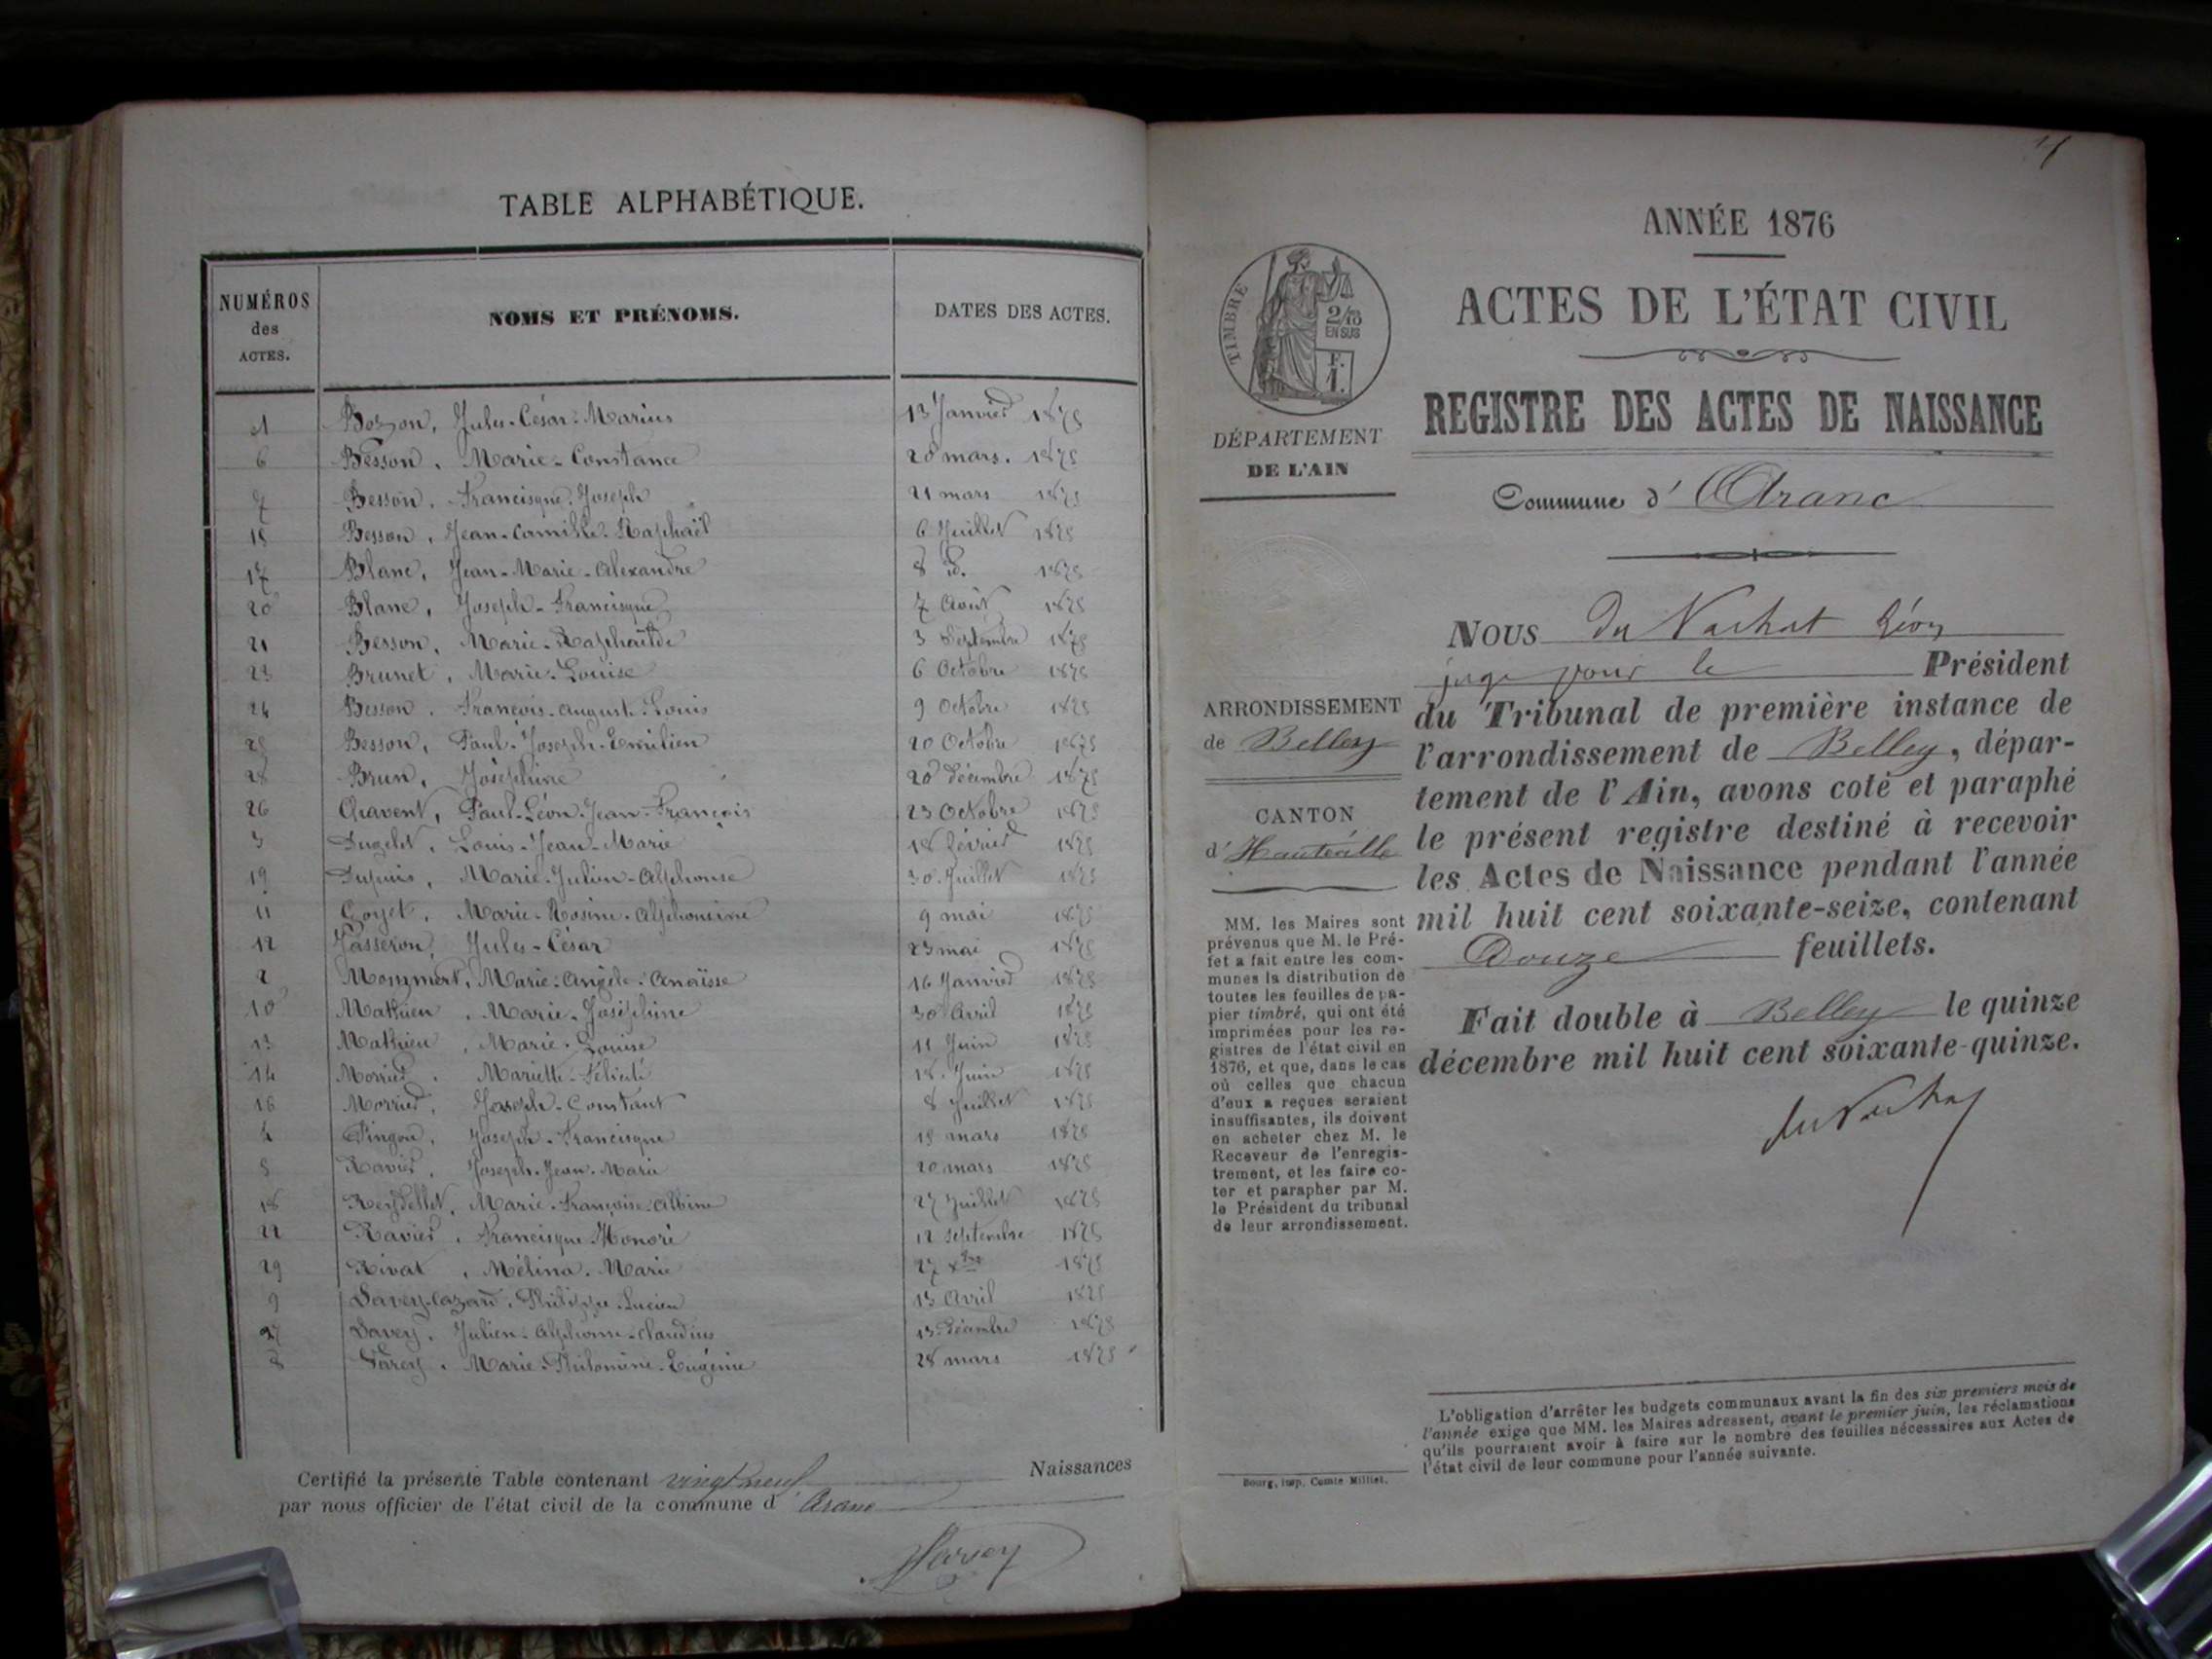 TABLE ALPHABÉTIQUE.
NUMÉROS des ACTES. NOMS ET PRÉNOMS. DATES DES ACTES.
1 Bozon, Jules-César-Marius 13 Janvier 1875
6 Besson, Marie-Constance 20 mars. 1875
7 Besson, Francisque-Joseph 21 mars 1875
15 Besson, Jean-Camille-Raphaël 6 Juillet 1875
17 Blanc, Jean-Marie-Alexandre 8 d°. 1875
20 Blanc, Joseph-Francisque 7 Août 1875
21 Besson, Marie-Raphaëlde 3 Septembre 1875
23 Brunet, Marie-Louise 6 Octobre 1875
24 Besson, François-August-Louis 9 Octobre 1875
25 Besson, Paul-Joseph-Emilien 20 Octobre 1875
28 Brun, Joséphine 20 Décembre 1875
26 Chavent, Paul-Léon-Jean-François 23 Octobre 1875
3 Dugelet, Louis-Jean-Marie 18 février 1875
19 Dupuis, Marie-Julien-Alphonse 30 Juillet 1875
11 Goyet, Marie-Rosine-Alphonsine 9 mai 1875
12 Jasseron, Jules-César 23 mai 1875
2 Marie-Angèle-Anaïsse 16 Janvier 1875
10 Mathieu, Marie-Joséphine 30 Avril 1875
13 Mathieu, Marie-Louise 11 Juin 1875
14 Morrier, Mariette-Félicité 18 Juin 1875
16 Morrier, Joseph-Constant 8 Juillet 1875
4 Pingon, Joseph-Francisque 15 mars 1875
5 Ravier, Joseph-Jean-Marie 20 mars 1875
18 Reydellet, Marie-Françoise-Albine 27 Juillet 1875
22 Ravier, Francisque Honoré 12 Septembre 1875
29 Rivat, Mélina-Marie 27 Xbre 1875
9 Savey-Cazard, Philippe-Lucien 15 Avril 1875
27 Savey, Julien-Alphonse-Claudius 13 Décembre 1875
8 Savey, Marie-Philomène-Eugénie 28 mars 1875
Certifié la présente Table contenant vingt neuf Naissances
par nous officier de l'état civil de la commune d'Aranc
Savey
ANNÉE 1876
ACTES DE L'ÉTAT CIVIL
REGISTRE DES ACTES DE NAISSANCE
Commune d'Aranc
TIMBRE
2/10
EN SUS
F.
1.
DÉPARTEMENT
DE L'AIN
ARRONDISSEMENT
de Belley
CANTON
d'Hauteville
MM. les Maires sont
prévenus que M. le Pré-
fet a fait entre les com-
munes la distribution de
toutes les feuilles de pa-
pier timbré, qui ont été
imprimées pour les re-
gistres de l'état civil en
1876, et que, dans le cas
où celles que chacun
d'eux a reçues seraient
insuffisantes, ils doivent
en acheter chez M. le
Receveur de l'enregis-
trement, et les faire co-
ter et parapher par M.
le Président du tribunal
de leur arrondissement.
Bourg, imp. Comte Milliet.
NOUS du Vachat Léon
juge pour le Président
du Tribunal de première instance de
l'arrondissement de Belley, dépar-
tement de l'Ain, avons coté et paraphé
le présent registre destiné à recevoir
les Actes de Naissance pendant l'année
mil huit cent soixante-seize, contenant
Douze feuillets.
Fait double à Belley le quinze
décembre mil huit cent soixante-quinze.
du Vachat
L'obligation d'arrêter les budgets communaux avant la fin des six premiers mois de
l'année exige que MM. les Maires adressent, avant le premier juin, les réclamations
qu'ils pourraient avoir à faire sur le nombre des feuilles nécessaires aux Actes de
l'état civil de leur commune pour l'année suivante.